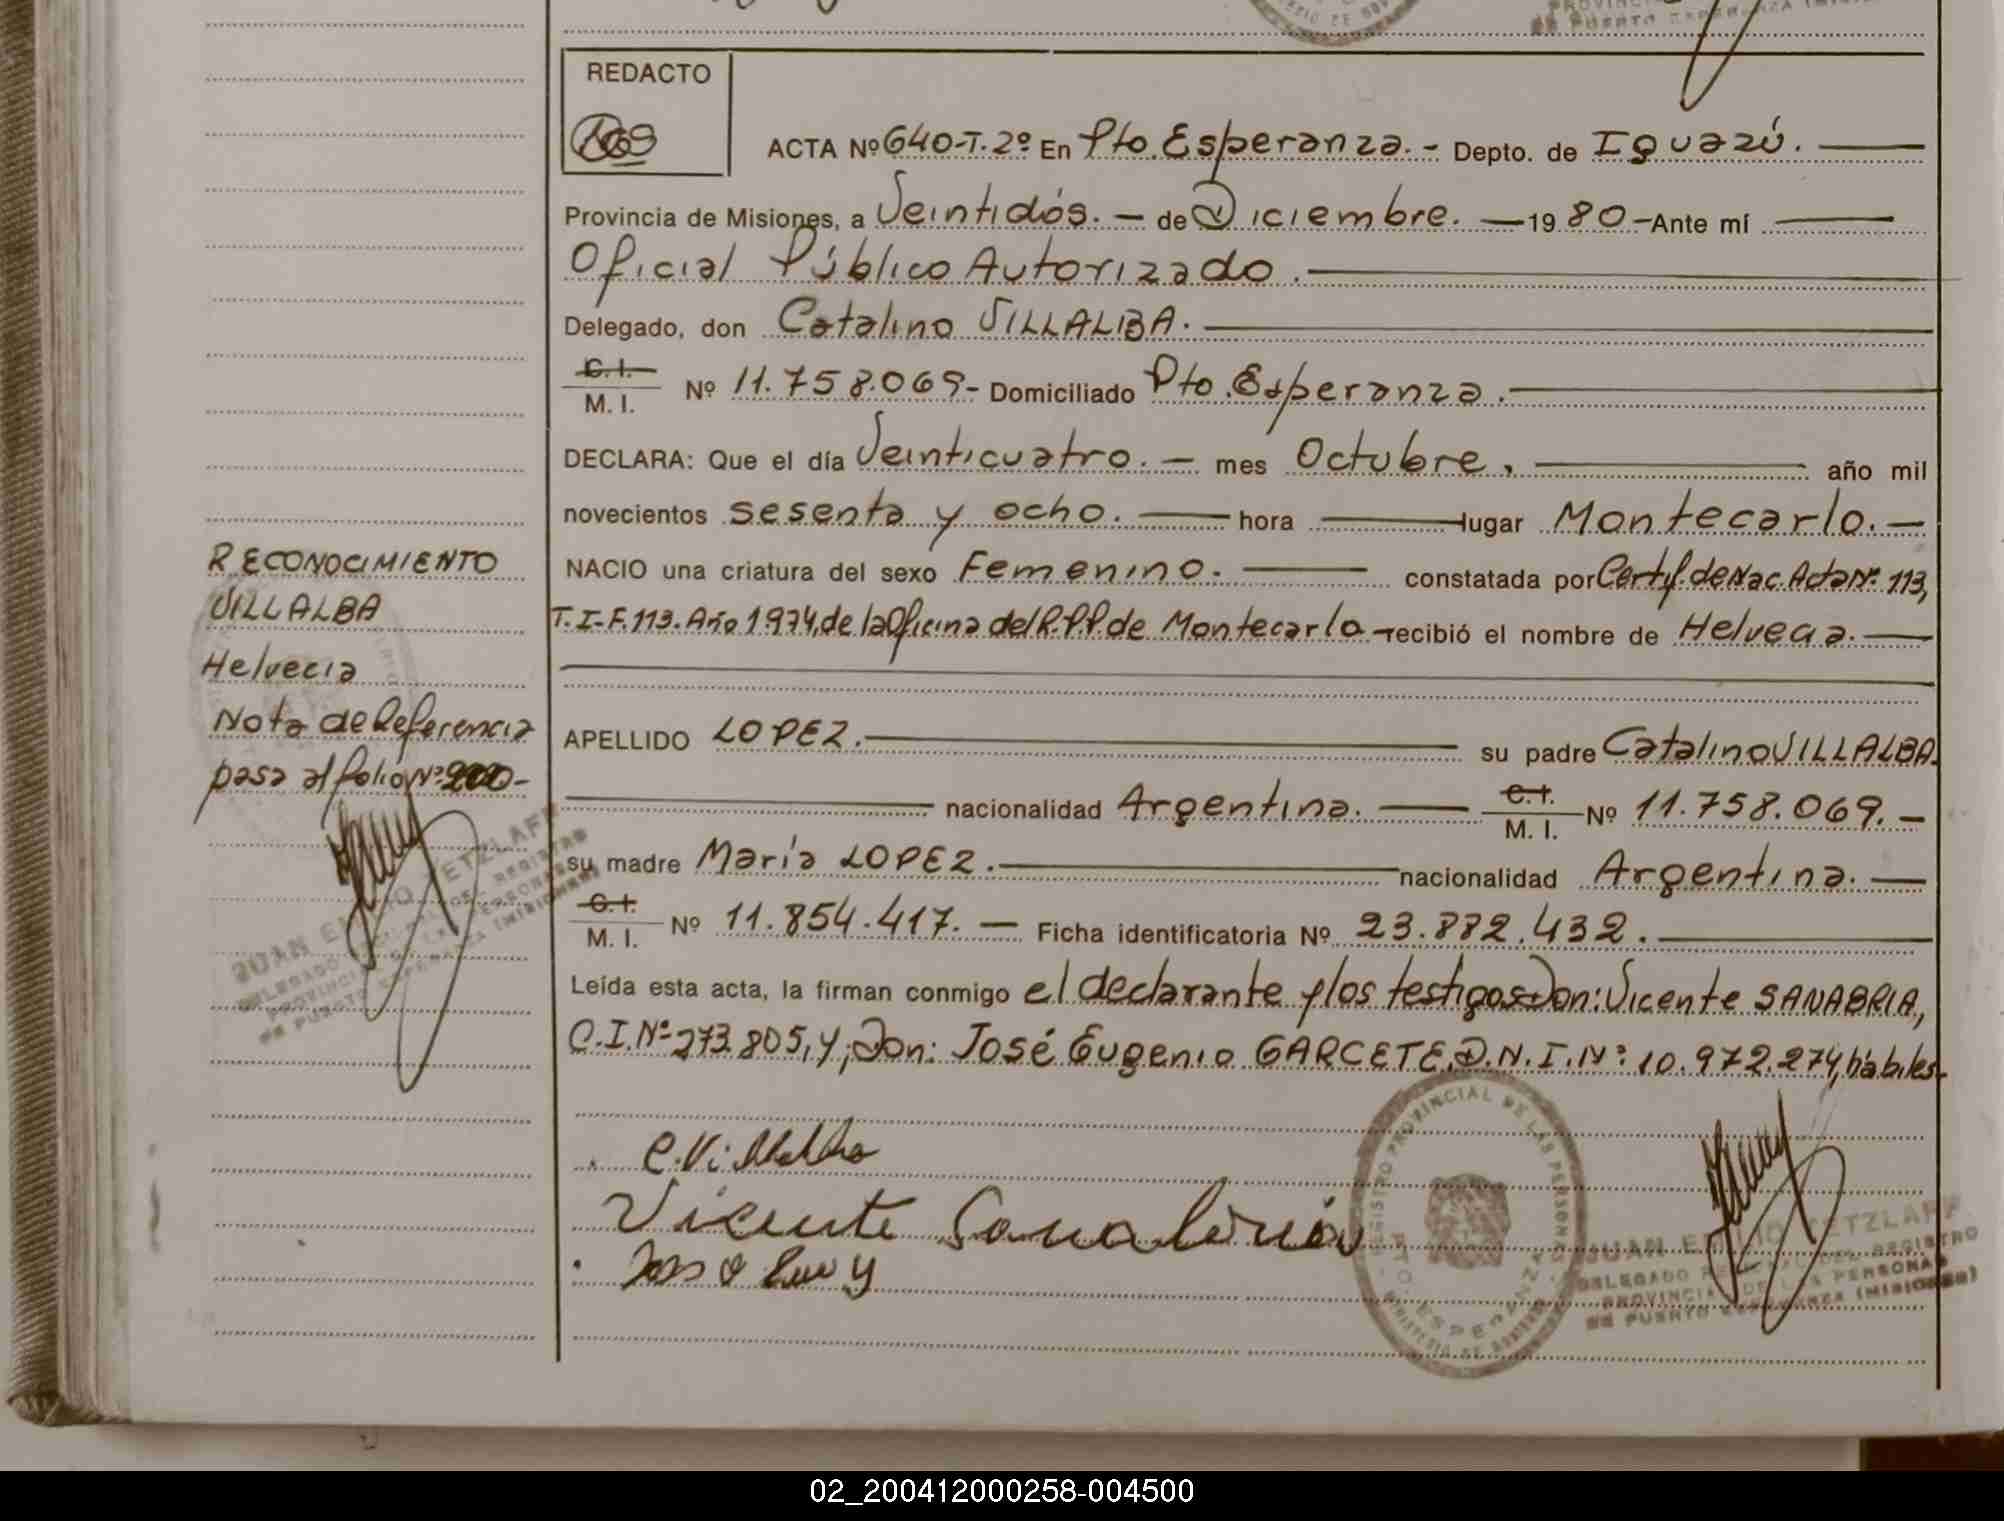 REDACTO
ACTA Nº 640-T.2º En Pto. Esperanza.- Depto. de Iguazú.
Provincia de Misiones, a Veintidós.- de Diciembre.- 19 80- Ante mí
Oficial Público Autorizado.
Delegado, don Catalino VILLALBA.
C. I.
M. I. Nº 11.758.069- Domiciliado Pto. Esperanza.
DECLARA: Que el día Veinticuatro.- mes Octubre, año mil
novecientos sesenta y ocho. hora lugar Montecarlo.-
NACIO una criatura del sexo Femenino. constatada por Certif. de Nac. Acta Nº 113,
T. I-F. 113. Año 1974, de la Oficina del R.P.P. de Montecarlo - recibió el nombre de Helvecia.
APELLIDO LOPEZ. su padre Catalino VILLALBA.
nacionalidad Argentina. C. I.
M. I. Nº 11.758.069.-
su madre María LOPEZ. nacionalidad Argentina.
C. I.
M. I. Nº 11.854.417.- Ficha identificatoria Nº 23.882.432.
Leída esta acta, la firman conmigo el declarante y los testigos Don: Vicente SANABRIA,
C.I.Nº 273.805, y, Don: José Eugenio GARCETE, D.N.I.Nº: 10.972.274, hábiles.-
C. Villalba
Vicente Sanabria
REGISTRO PROVINCIAL DE LAS PERSONAS
PTO. ESPERANZA
MINISTERIO DE GOBIERNO
JUAN EMILIO TETZLAFF
DELEGADO DEL REGISTRO
PROVINCIAL DE LAS PERSONAS
DE PUERTO ESPERANZA (MISIONES)
RECONOCIMIENTO
VILLALBA
Helvecia
Nota de Referencia
pasa al folio Nº 200-
JUAN EMILIO TETZLAFF
DELEGADO DEL REGISTRO
PROVINCIAL DE LAS PERSONAS
DE PUERTO ESPERANZA (MISIONES)
02_200412000258-004500